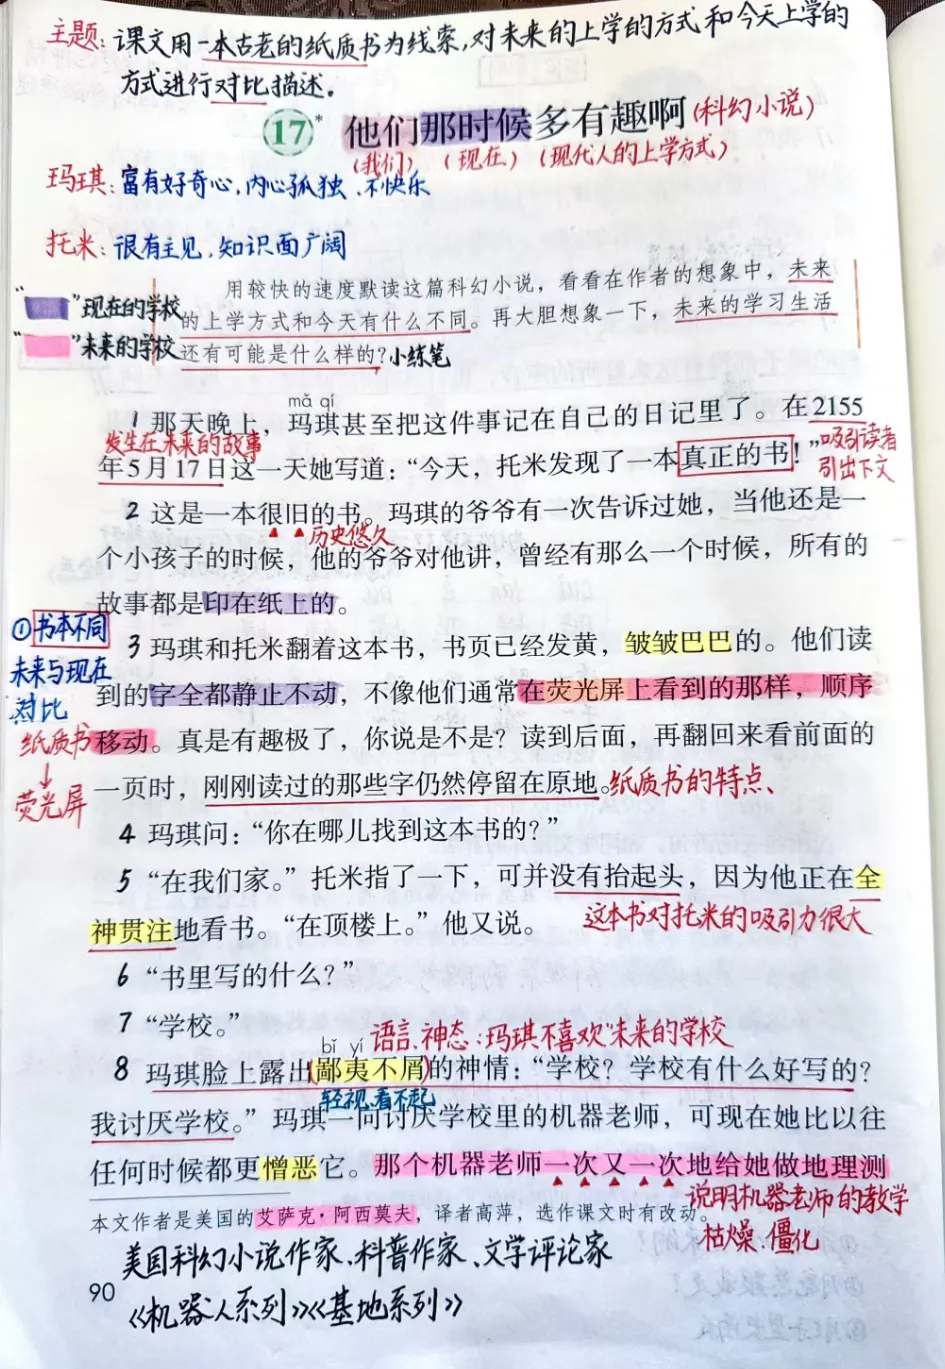 主题:课文用一本古老的纸质书为线索,对未来的上学的方式和今天上学的
方式进行对比描述。
17* 他们那时候多有趣啊(科幻小说)
(我们) (现在) (现代人的上学方式)
玛琪:富有好奇心,内心孤独、不快乐
托米:很有主见,知识面广阔
用较快的速度默读这篇科幻小说，看看在作者的想象中，未来
“ ”现在的学校
的上学方式和今天有什么不同。再大胆想象一下，未来的学习生活
“ ”未来的学校
还有可能是什么样的？小练笔
mǎ qí
1 那天晚上，玛琪甚至把这件事记在自己的日记里了。在2155
发生在未来的故事
吸引读者
年5月17日这一天她写道：“今天，托米发现了一本真正的书！”
引出下文
2 这是一本很旧的书。玛琪的爷爷有一次告诉过她，当他还是一
历史悠久
个小孩子的时候，他的爷爷对他讲，曾经有那么一个时候，所有的
故事都是印在纸上的。
①书本不同
3 玛琪和托米翻着这本书，书页已经发黄，皱皱巴巴的。他们读
未来与现在
到的字全都静止不动，不像他们通常在荧光屏上看到的那样，顺序
对比
纸质书
移动。真是有趣极了，你说是不是？读到后面，再翻回来看前面的
↓
荧光屏
一页时，刚刚读过的那些字仍然停留在原地。纸质书的特点、
4 玛琪问：“你在哪儿找到这本书的？”
5 “在我们家。”托米指了一下，可并没有抬起头，因为他正在全
神贯注地看书。“在顶楼上。”他又说。
这本书对托米的吸引力很大
6 “书里写的什么？”
7 “学校。”
语言、神态:玛琪不喜欢“未来的学校
bǐ yí
8 玛琪脸上露出(鄙夷不屑)的神情：“学校？学校有什么好写的？
轻视.看不起
我讨厌学校。”玛琪一向讨厌学校里的机器老师，可现在她比以往
任何时候都更憎恶它。那个机器老师一次又一次地给她做地理测
说明机器老师的教学
枯燥.僵化
本文作者是美国的艾萨克·阿西莫夫，译者高萍，选作课文时有改动。
美国科幻小说作家、科普作家、文学评论家
90
《机器人系列》《基地系列》